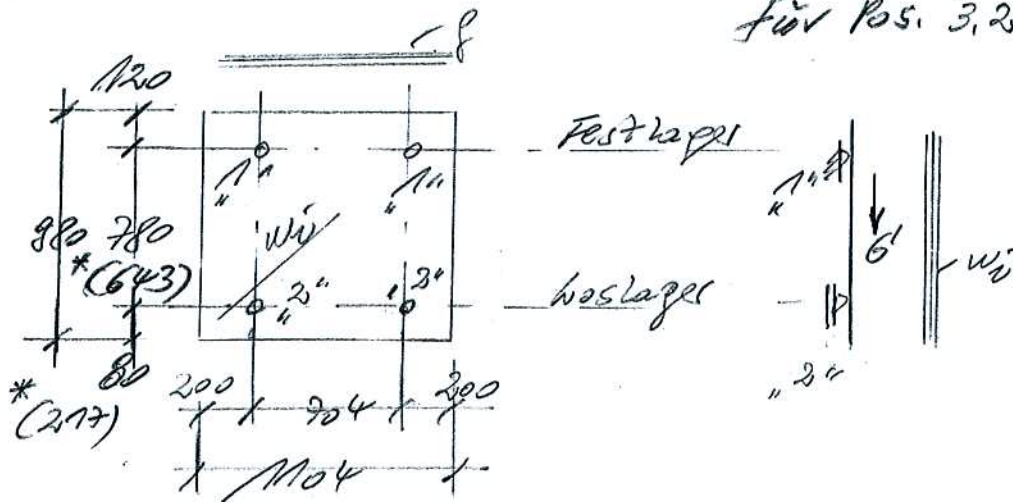 für Pos. 3.2
g
120
Festlager
„1“ „1“ „1“
980 780
wi G wi
*(643)
„2“ „2“ Loslager
80 „2“
*(217)
200 704 200
1104